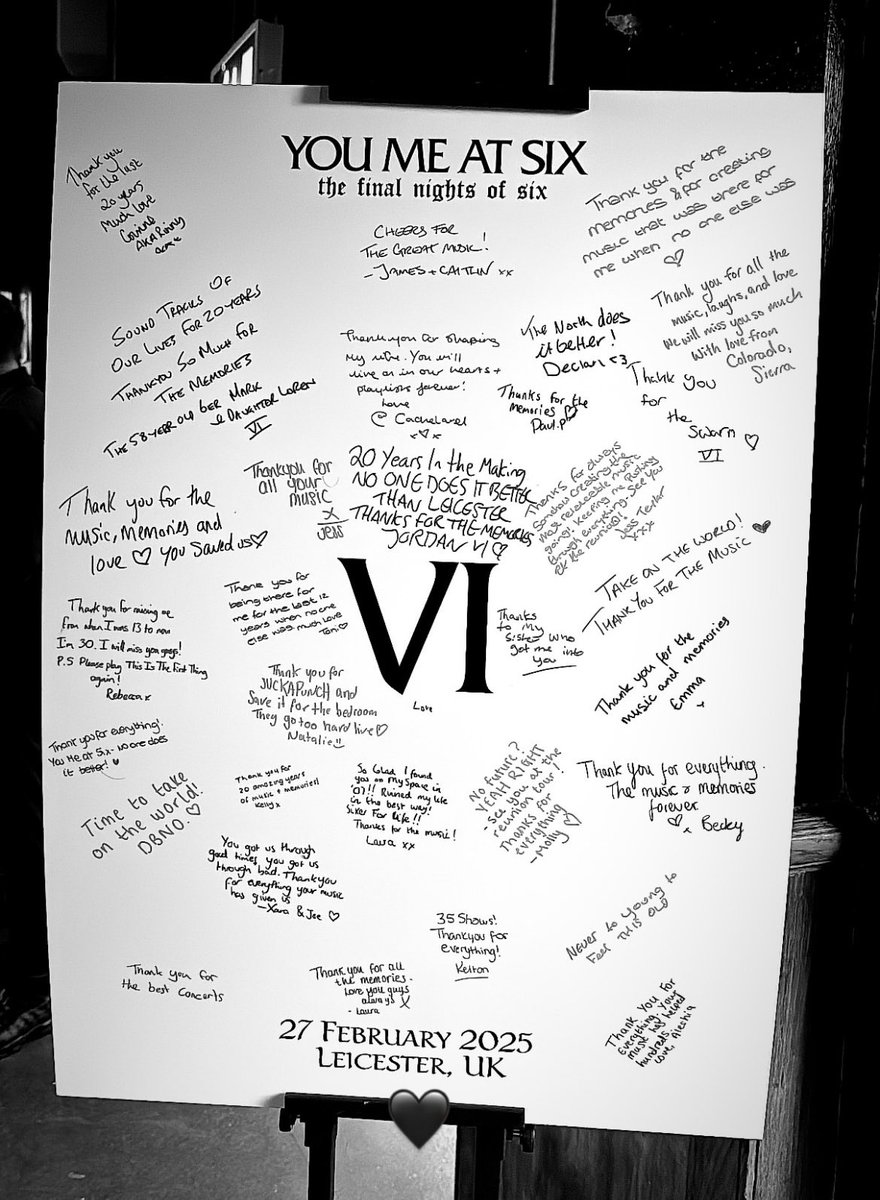 YOU ME AT SIX
the final nights of six
Thank you
for the last
20 years
Much love
Corinne
AKA Rinny
CHEERS FOR
THE GREAT MUSIC!
- JAMES + CAITLIN xx
Thank you for the
memories & for creating
music that was there for
me when no one else was
SOUND TRACKS OF
OUR LIVES FOR 20 YEARS
THANKYOU SO MUCH FOR
THE MEMORIES
THE 58 YEAR OLD MARK
& DAUGHTER LOREN
VI
Thankyou for shaping
My life. You will
live on in our hearts +
playlists forever!
Love
@
x♡x
The North does
it better!
Declan <3
Thanks for the
memories
Paul.P
Thank you for all the
music, laughs, and love
We will miss you so much
With love from
Colorado,
Sierra
Thank you
for
the
Swarm ♡
VI
Thank you for the
music, Memories and
love ♡ You Saved us♡
Thankyou for
all your
music
x
Jess
20 Years In the Making
NO ONE DOES IT BETTER
THAN LEICESTER
THANKS FOR THE MEMORIES
JORDAN VI ♡
Thanks for always
Somehow creating the
most relateable music
going! Keeping me Pushing
through everything. See you
@ the reunion!
Jess Taylor
xxx
TAKE ON THE WORLD!
THANK YOU FOR THE MUSIC ♥
Thank you for raising me
from when I was 13 to now
I'm 30. I will miss you guys!
P.S Please play This Is The First Thing
again!
Rebecca x
Thank you for
being there for
me for the last 12
years when no one
else was much love
Toni ♡
VI
Thanks
to My
Sister who
got me into
you
Love
Thank you for the
music and memories
Emma
x
Thank you for
SUCKAPUNCH and
Save it for the bedroom
They go too hard live♡
Natalie
Thank you for everything!
You Me at Six - no one does
it better! ♥
Time to take
on the world!
DBNO. ♡
Thank you for
20 amazing years
of music + memories!
Kelly x
So Glad I found
you on MySpace in
'07!! Ruined my life
in the best way!
Sixer For life!!
Thanks for the music!
Laura xx
No future?
YEAH RIGHT
- See you at the
reunion tour!
Thanks for
everything
- Molly ♡
Thank you for everything.
The music & memories
forever
♡ x Becky
You got us through
good times, you got us
through bad. Thankyou
for everything your music
has given us
- Xara & Joe ♡
35 Shows!
Thankyou for
everything!
Kelton
Never to young to
Feel THIS OLD
Thank you for
the best concerts
Thank you for all
the memories.
Love you guys
always x
- Laura
Thank You For
Everything. Your
music has helped
hundreds.
Love, Alechia
27 FEBRUARY 2025
LEICESTER, UK